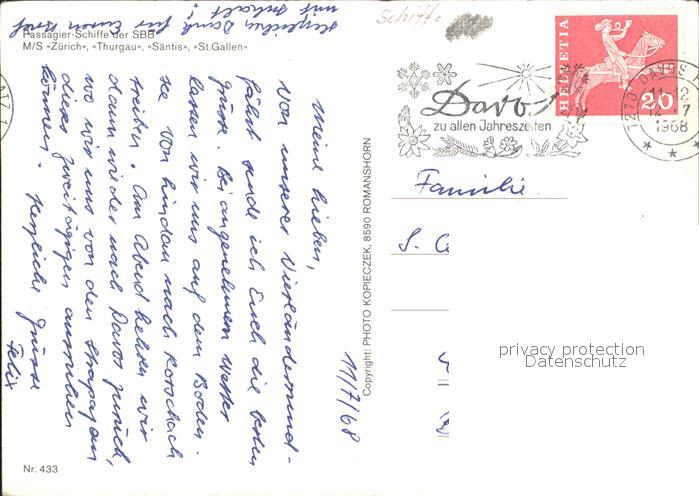 Herzlichen Dank für Euren Brief
mit Inhalt!
Passagier-Schiffe der SBB
M/S «Zürich», «Thurgau», «Säntis», «St.Gallen»
11/7/68
Meine Lieben,
Von unserer Vierländerrund-
fahrt sende ich Euch die besten
Grüsse. Bei angenehmem Wetter
lassen wir uns auf dem Boden-
see von Lindau nach Rorschach
treiben. Am Abend kehren wir
dann wieder nach Davos zurück,
wo wir uns von den Strapazen
dieses zweitägigen ausruhen
können. Herzliche Grüsse
Felix
Nr. 433
Copyright: PHOTO KOPIECZEK, 8590 ROMANSHORN
Schiffe
Davos
zu allen Jahreszeiten
HELVETIA
20
7270 DAVOS
11-12
7
1968
Familie
S.
privacy protection
Datenschutz